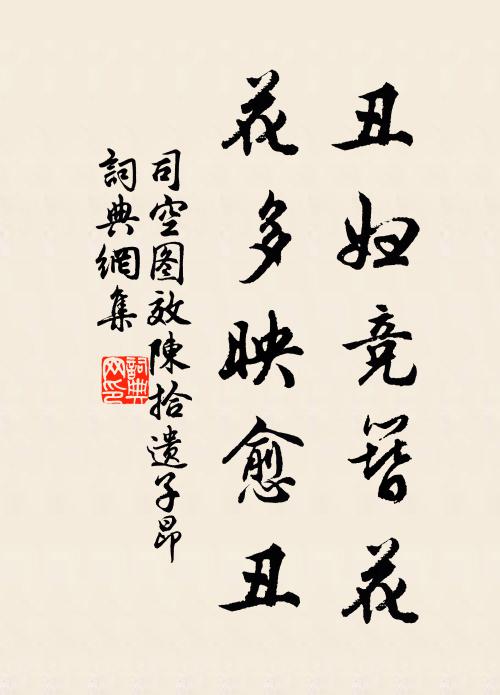 丑妇竞簪花
花多映愈丑
司空图效陳拾遺子昂
詞典網集
詞典
网印